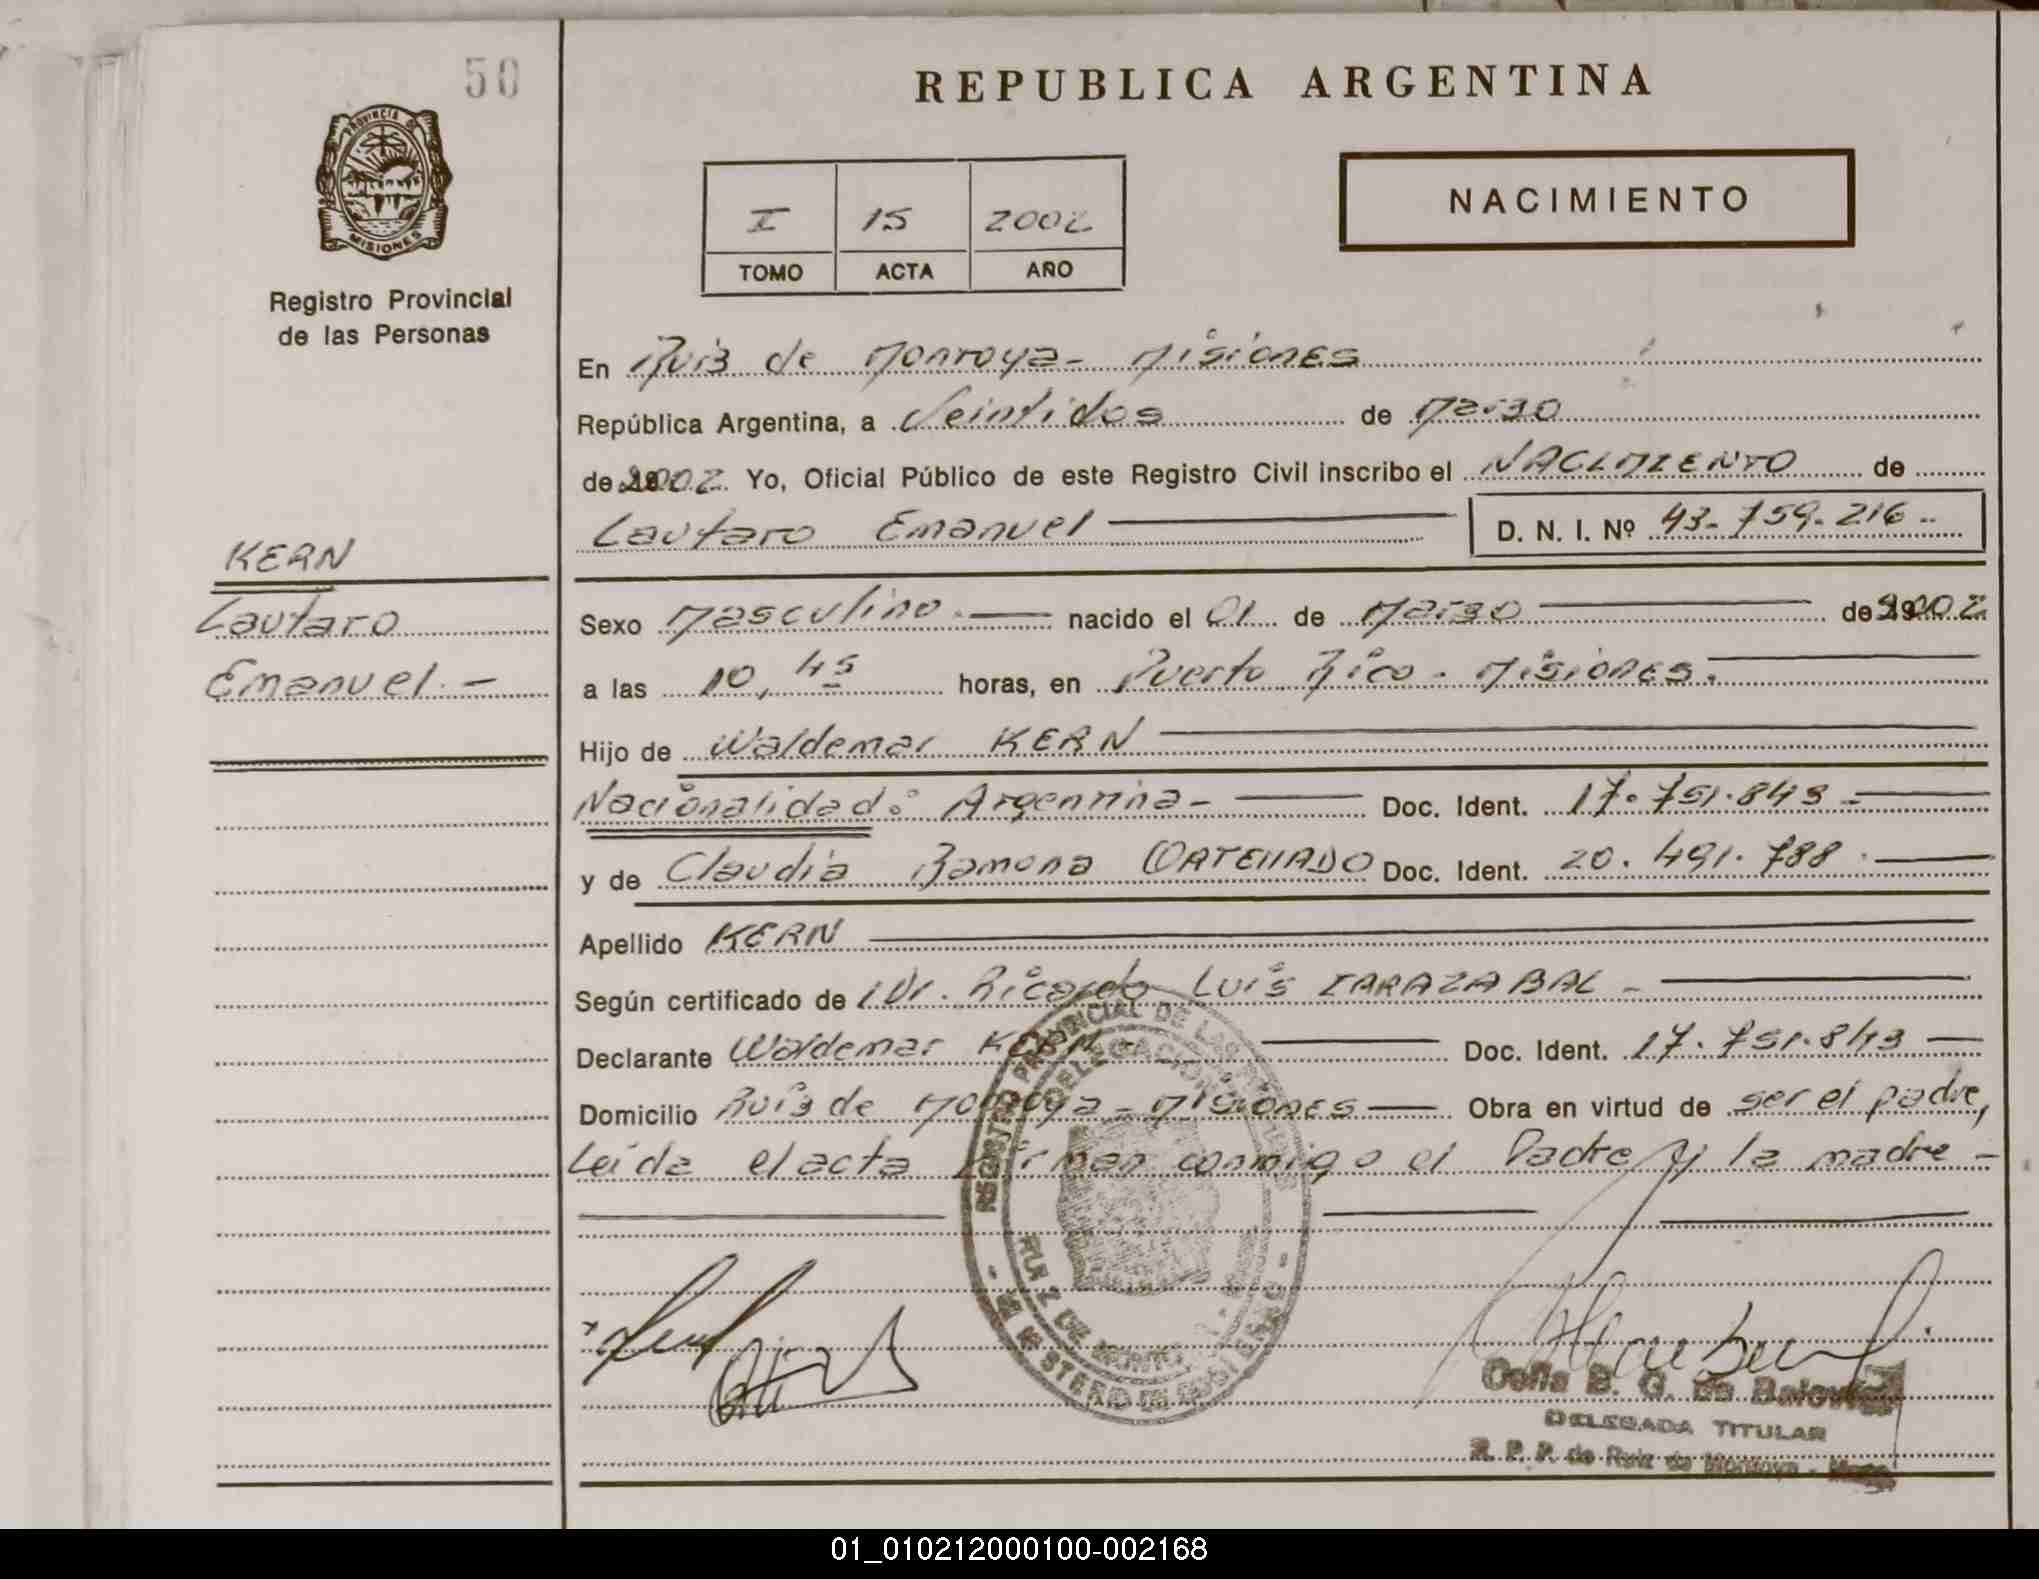 50
REPUBLICA ARGENTINA
PROVINCIA DE
MISIONES
Registro Provincial
de las Personas
I 15 2002
TOMO ACTA AÑO
NACIMIENTO
En Ruiz de Montoya - Misiones
República Argentina, a Veintidos de Marzo
de 2002 Yo, Oficial Público de este Registro Civil inscribo el NACIMIENTO de
Lautaro Emanuel D. N. I. Nº 43-759-216-
KERN
Lautaro
Emanuel.-
Sexo Masculino.- nacido el 01 de Marzo de 2002
a las 10,45 horas, en Puerto Rico - Misiones.
Hijo de Waldemar KERN
Nacionalidad: Argentina- Doc. Ident. 17.751.843-
y de Claudia Ramona Doc. Ident. 20.491.788.-
Apellido KERN
Según certificado de Dr. Ricardo Luis IRRAZABAL -
Declarante Waldemar KERN Doc. Ident. 17.751.843 -
Domicilio Ruiz de Montoya - Misiones - Obra en virtud de ser el padre,
Leída el acta firman conmigo el Padre y la madre -
REGISTRO PROVINCIAL DE LAS PERSONAS
DELEGACION
RUIZ DE MONTOYA
MINISTERIO DE GOBIERNO
Celia B. G. de
DELEGADA TITULAR
R. P. P. de Ruiz de Montoya - Mnes.
01_010212000100-002168